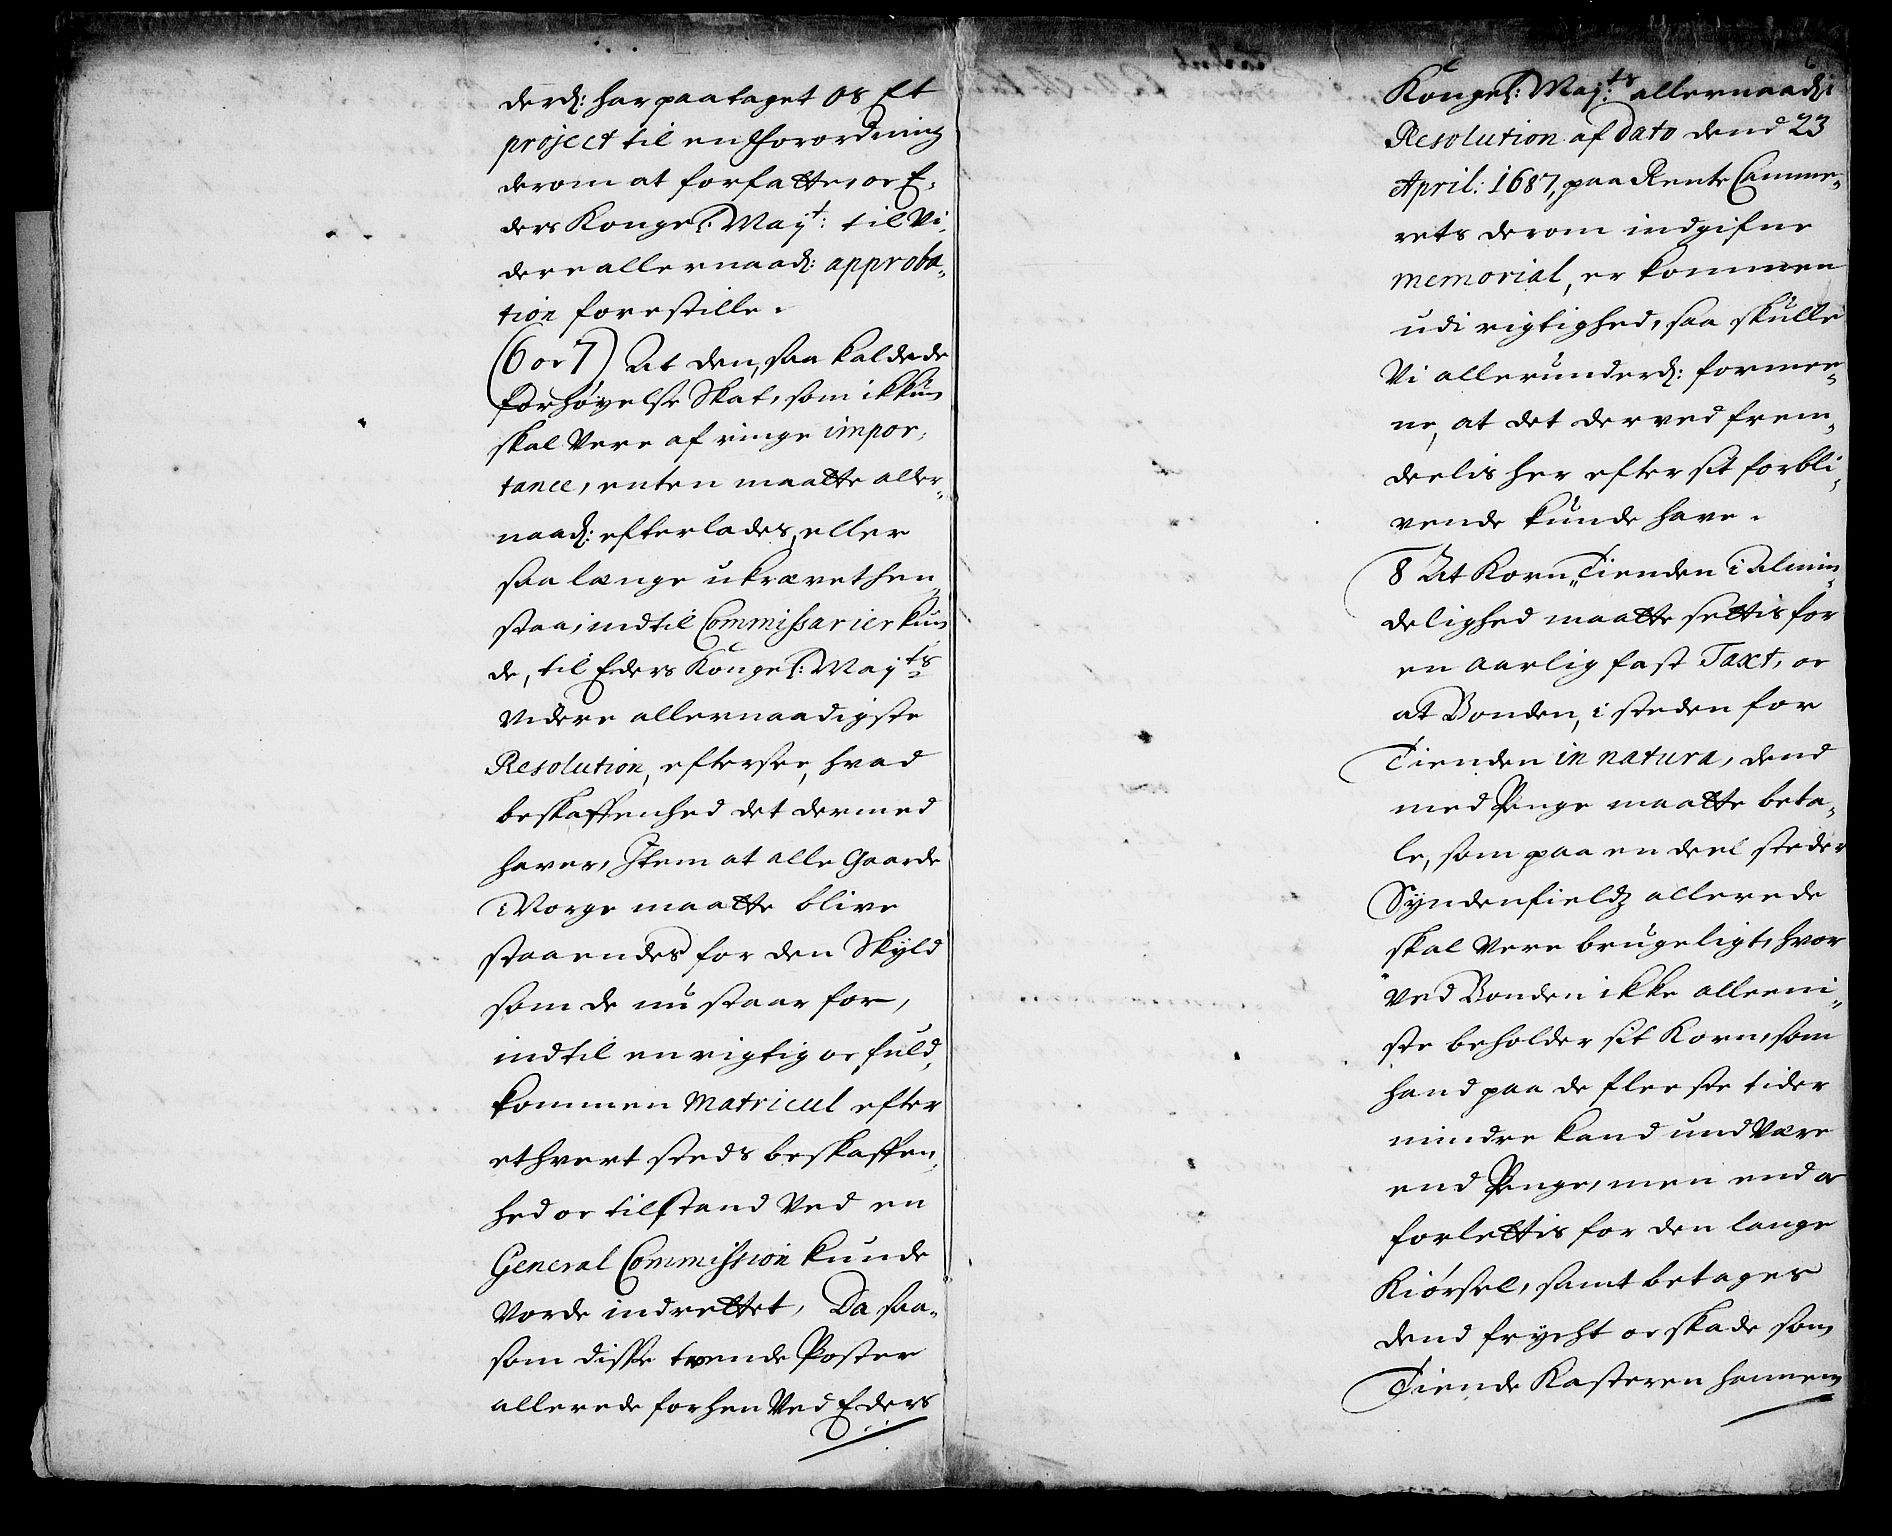 derd: har paataget os Et
project til en Forordning
derom at forfatte, oc E,
ders Kongel: Mayt: til Vi,
dere allernaad: approba„
tion forestille.
(6 oc 7) At den, saa kaldede
Forhøyelse Skat, som ikkun
skal Vere af ringe impor,
tance, enten maatte aller„
naad: efterlades, eller
saa længe ukrævet hen„
staa, indtil Commissarier kun„
de, til Eders Kongel: Mayts
Videre allernaadigste
Resolution, eftersee, hvad
beskaffenhed det dermed
haver, Item at alle Gaarde
i Norge maatte blive
staaendes for den Skyld
som de nu staar for,
indtil en rigtig oc fuld„
kommen Matricul efter
ethvert steds beskaffen„
hed oc tilstand Ved en
General Commission kunde
Vorde indrettet, Da saa„
som disse tvende Poster
allerede forhen Ved Eders
Kongel: Mayts allernaad:
Resolution af dato dend 23
April: 1687, paa Rente Camme„
rets derom indgifne
memorial, er kommen
udi rigtighed, saa skulle
Vi allerunderd: formee„
ne, at det derved frem„
deelis her efter sit forbli„
vende kunde have.
8 At Korn„Tienden i Almin„
delighed maatte settis for
en aarlig fast Taxt, oc
at Bonden, i steden for
Tienden in natura, dend
med Penge maatte beta„
le, som paa en deel steder
Syndenfieldz allerede
skal Vere brugeligt, hvor
Ved Bonden ikke alleeni„
ste beholder sit Korn, som
hand paa de fleeste tider
mindre kand undvære
end Penge, men end oc
forlettis for den lange
Kiørsel, samt betages
dend frycht oc skade som
Tiende Kasteren hannem